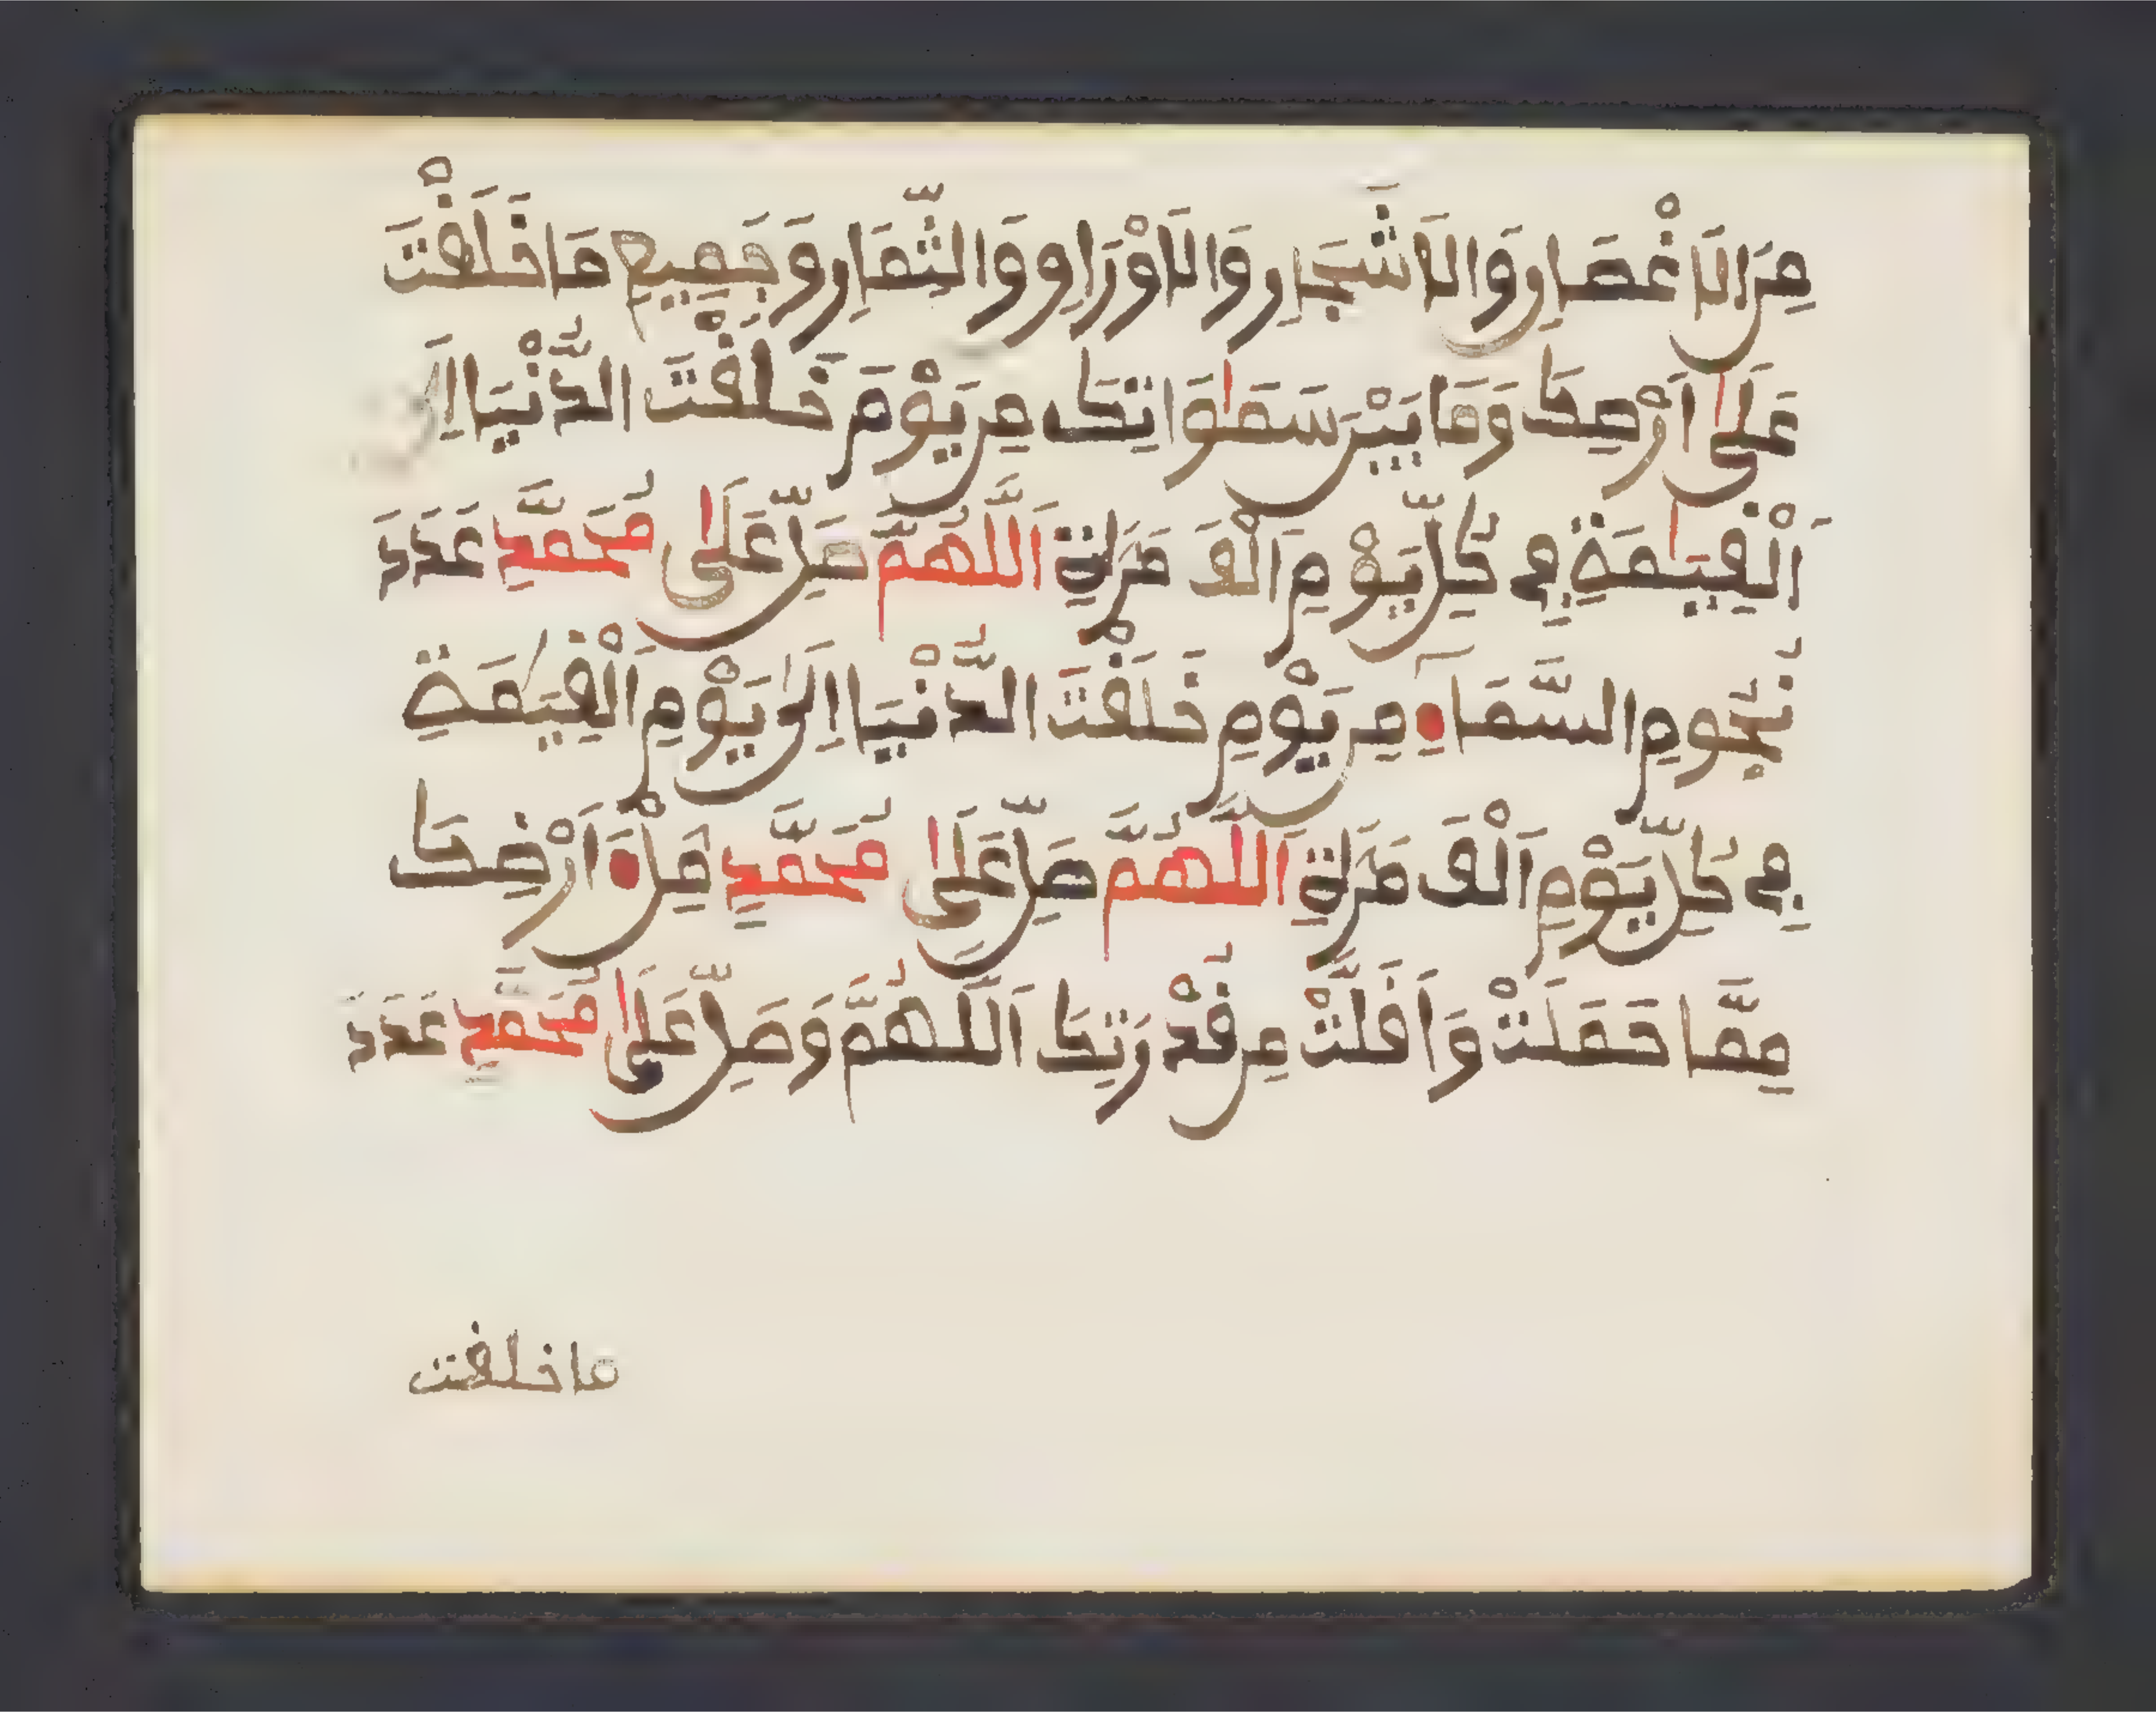 مِنَ الَاغْصَانِ وَالَاشْجَارِ وَالَاوْرَاقِ وَالثِّمَارِ وَجَمِيعِ مَا خَلَقْتَ
عَلَى اَرْضِكَ وَمَا بَيْنَ سَمَاوَاتِكَ مِنْ يَوْمَ خَلَقْتَ الدُّنْيَا اِلَى
يَوْمِ اَلْقِيَامَةِ فِي كُلِّ يَوْمٍ اَلْفَ مَرَّةٍ اَللَّهُمَّ صَلِّ عَلَى مُحَمَّدٍ عَدَدَ
نُجُومِ السَّمَآءِ مِنْ يَوْمِ خَلَقْتَ الدُّنْيَا اِلَى يَوْمِ اَلْقِيَامَةِ
فِي كُلِّ يَوْمٍ اَلْفَ مَرَّةٍ اَللَّهُمَّ صَلِّ عَلَى مُحَمَّدٍ مِلْءَ اَرْضِكَ
مِمَّا حَمَلَتْ وَاَقَلَّتْ مِنْ قُدْرَتِكَ اَللَّهُمَّ وَصَلِّ عَلَى مُحَمَّدٍ عَدَدَ
ما خلقت